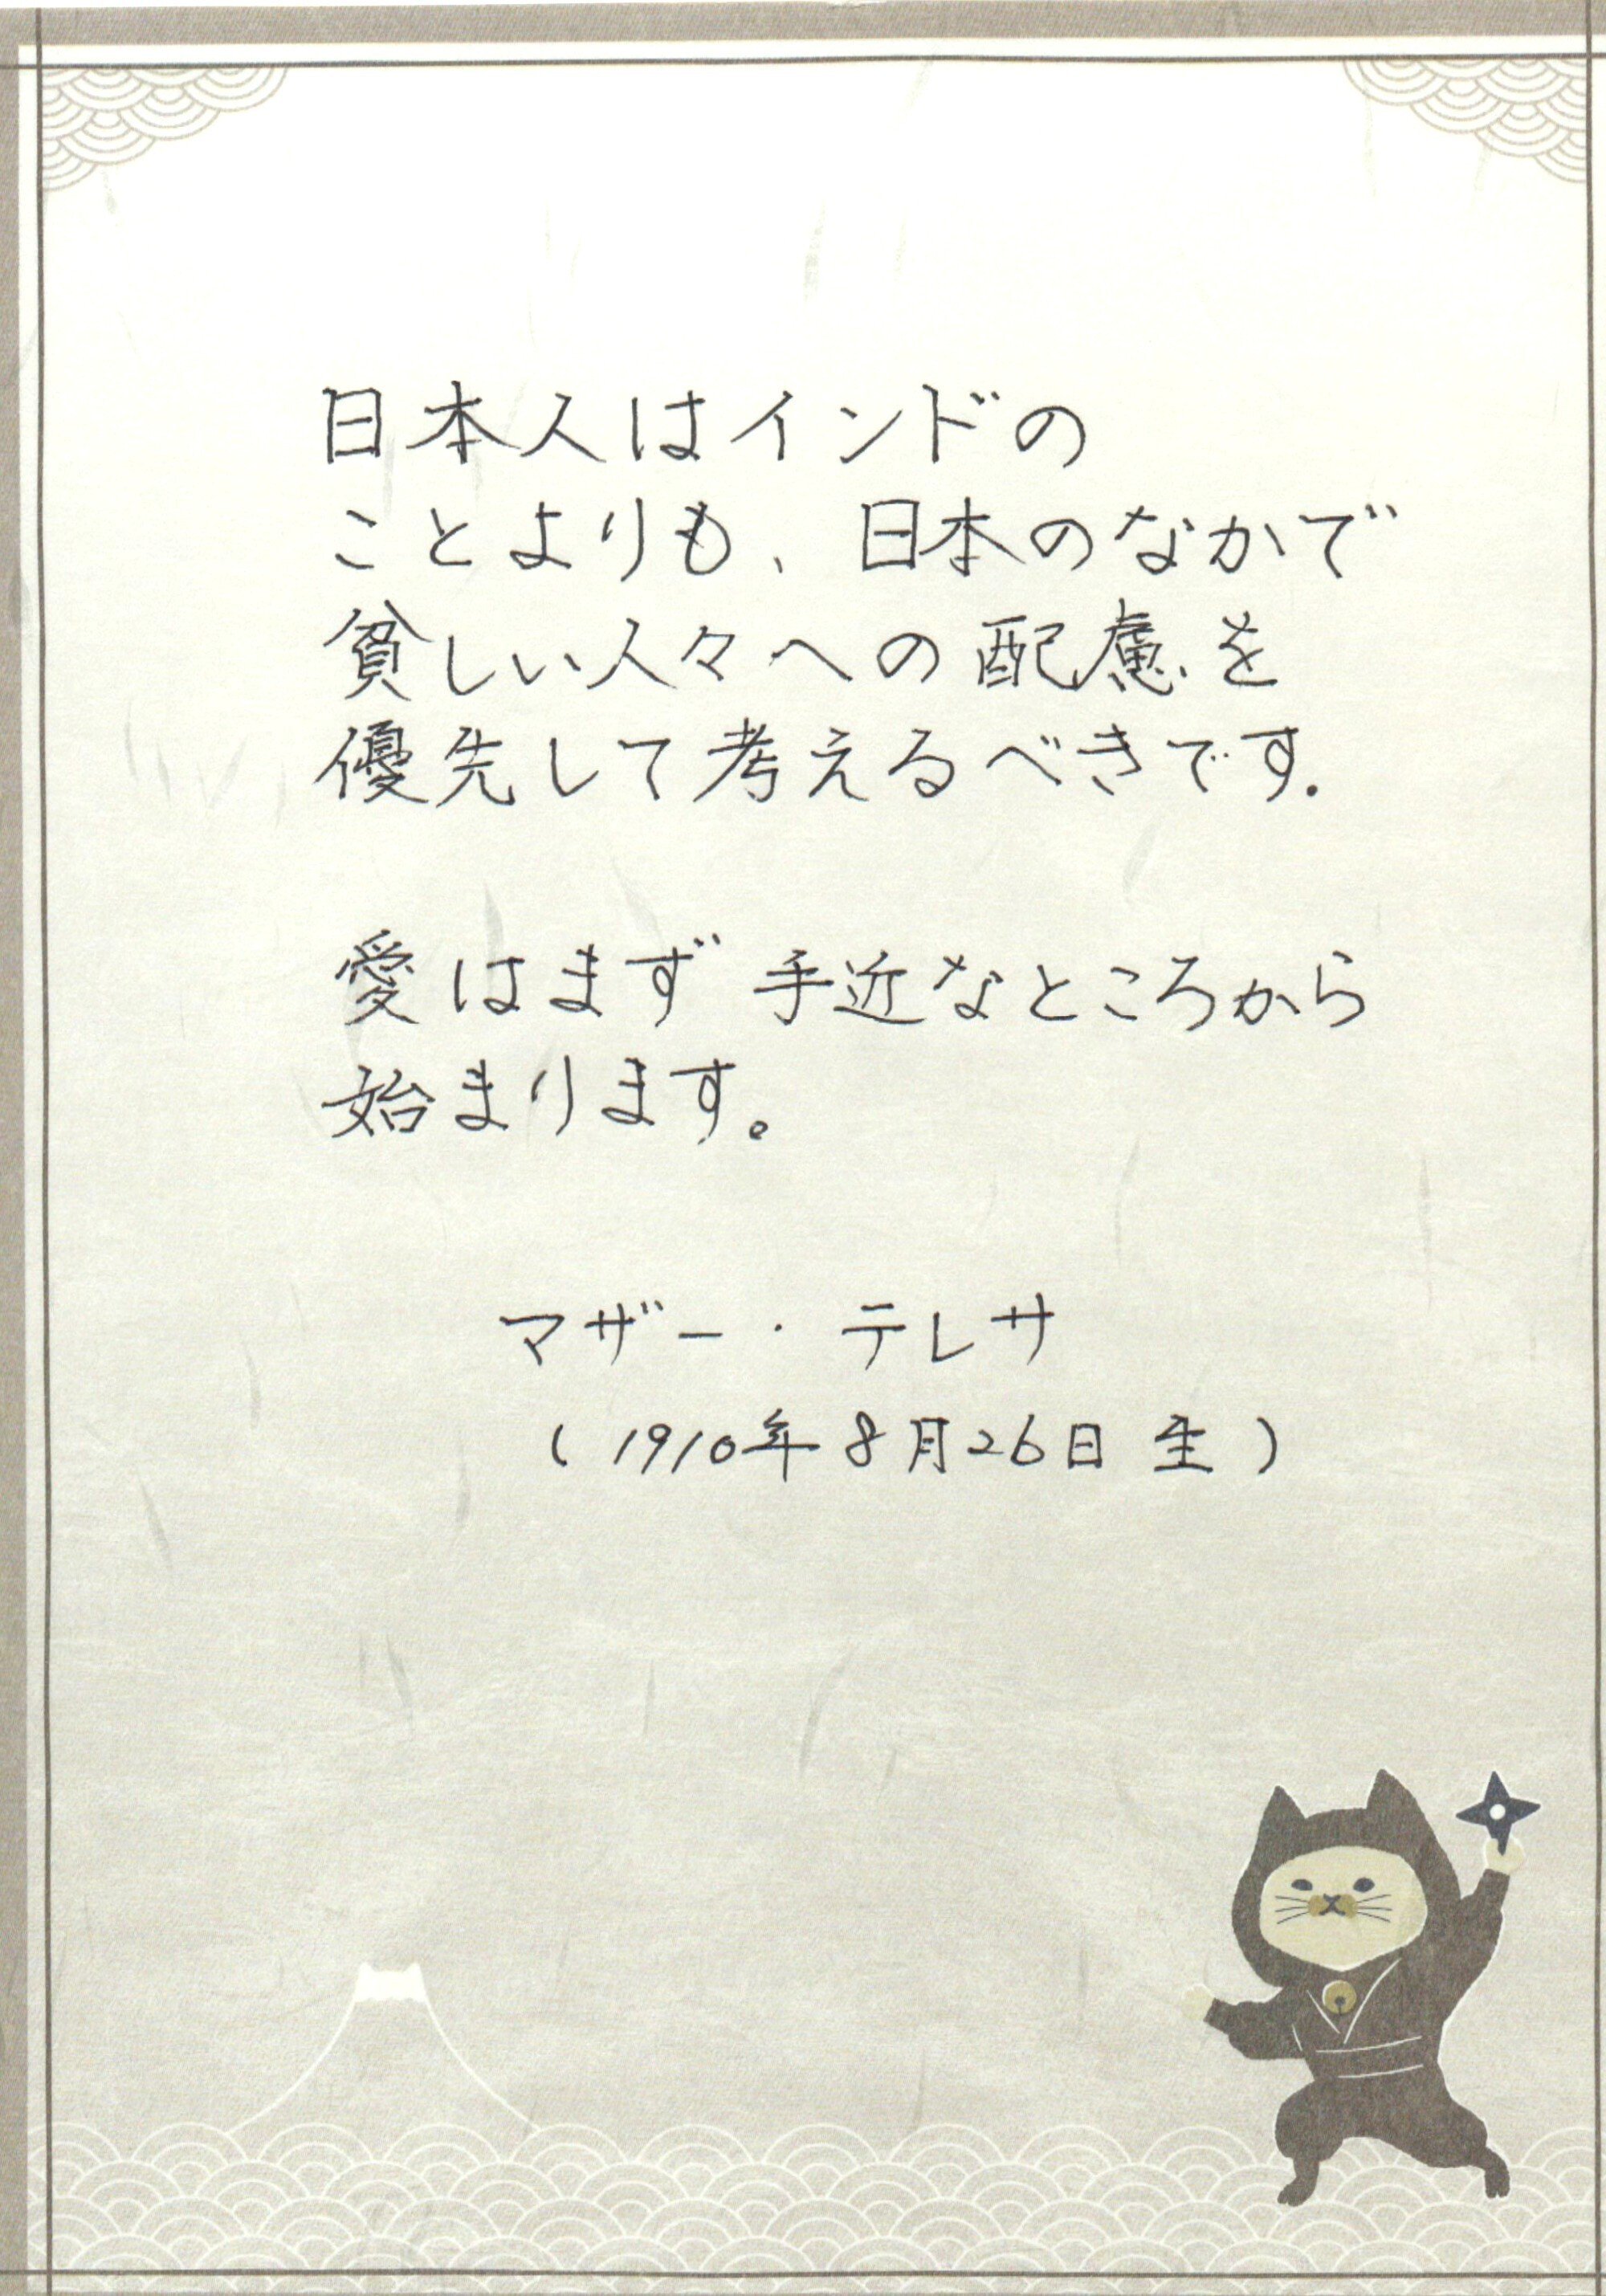 日本人はインドの
ことよりも、日本のなかで
貧しい人々への配慮を
優先して考えるべきです.
愛はまず 手近なところから
始まります。
マザー・テレサ
(1910年8月26日生)